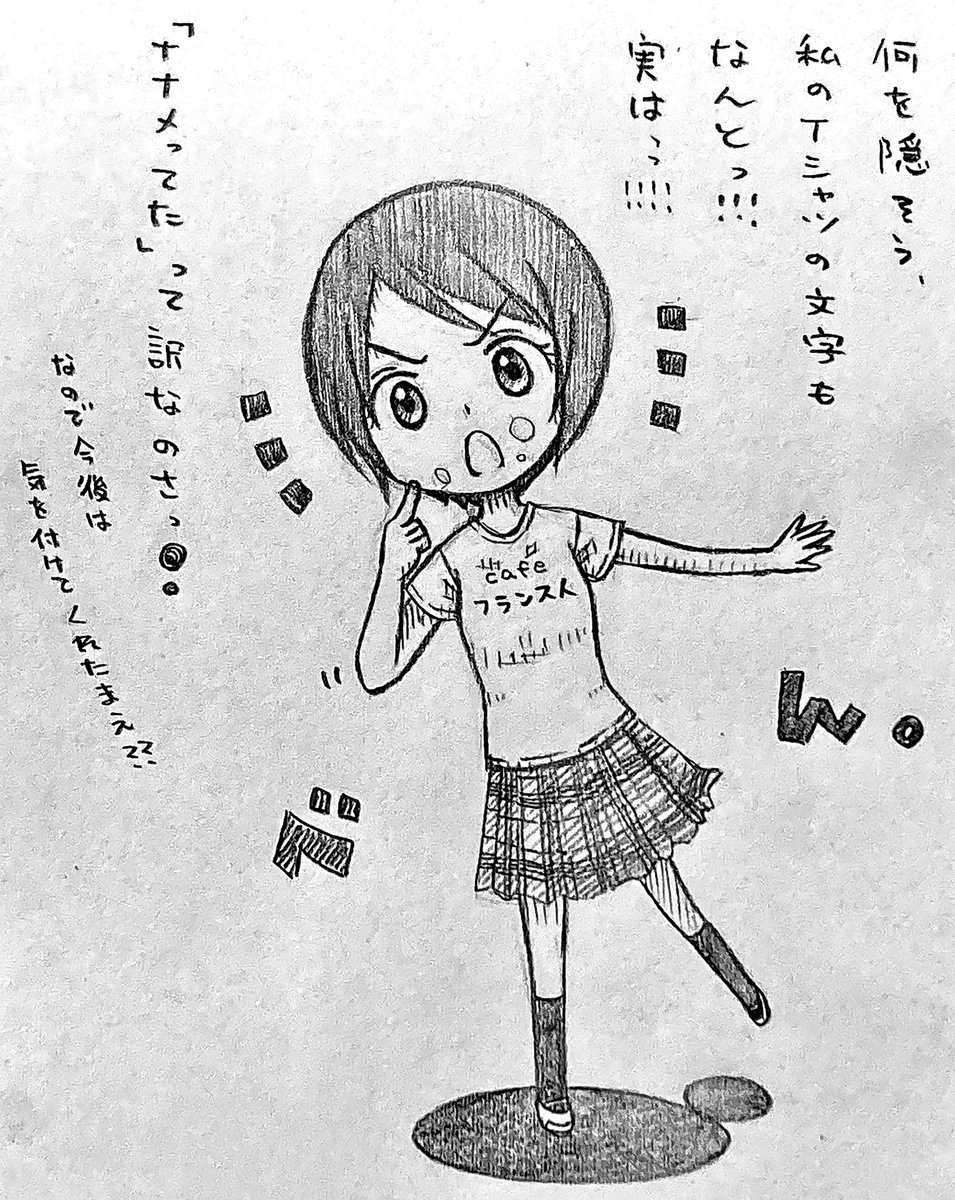 何を隠そう、
私のTシャツの文字も
なんとっ!!!
実はっっ!!!!
「ナナメってた」って訳なのさっ。
なので今後は
気を付けてくれたまえ??
cafe
フランス人
ド
ん。